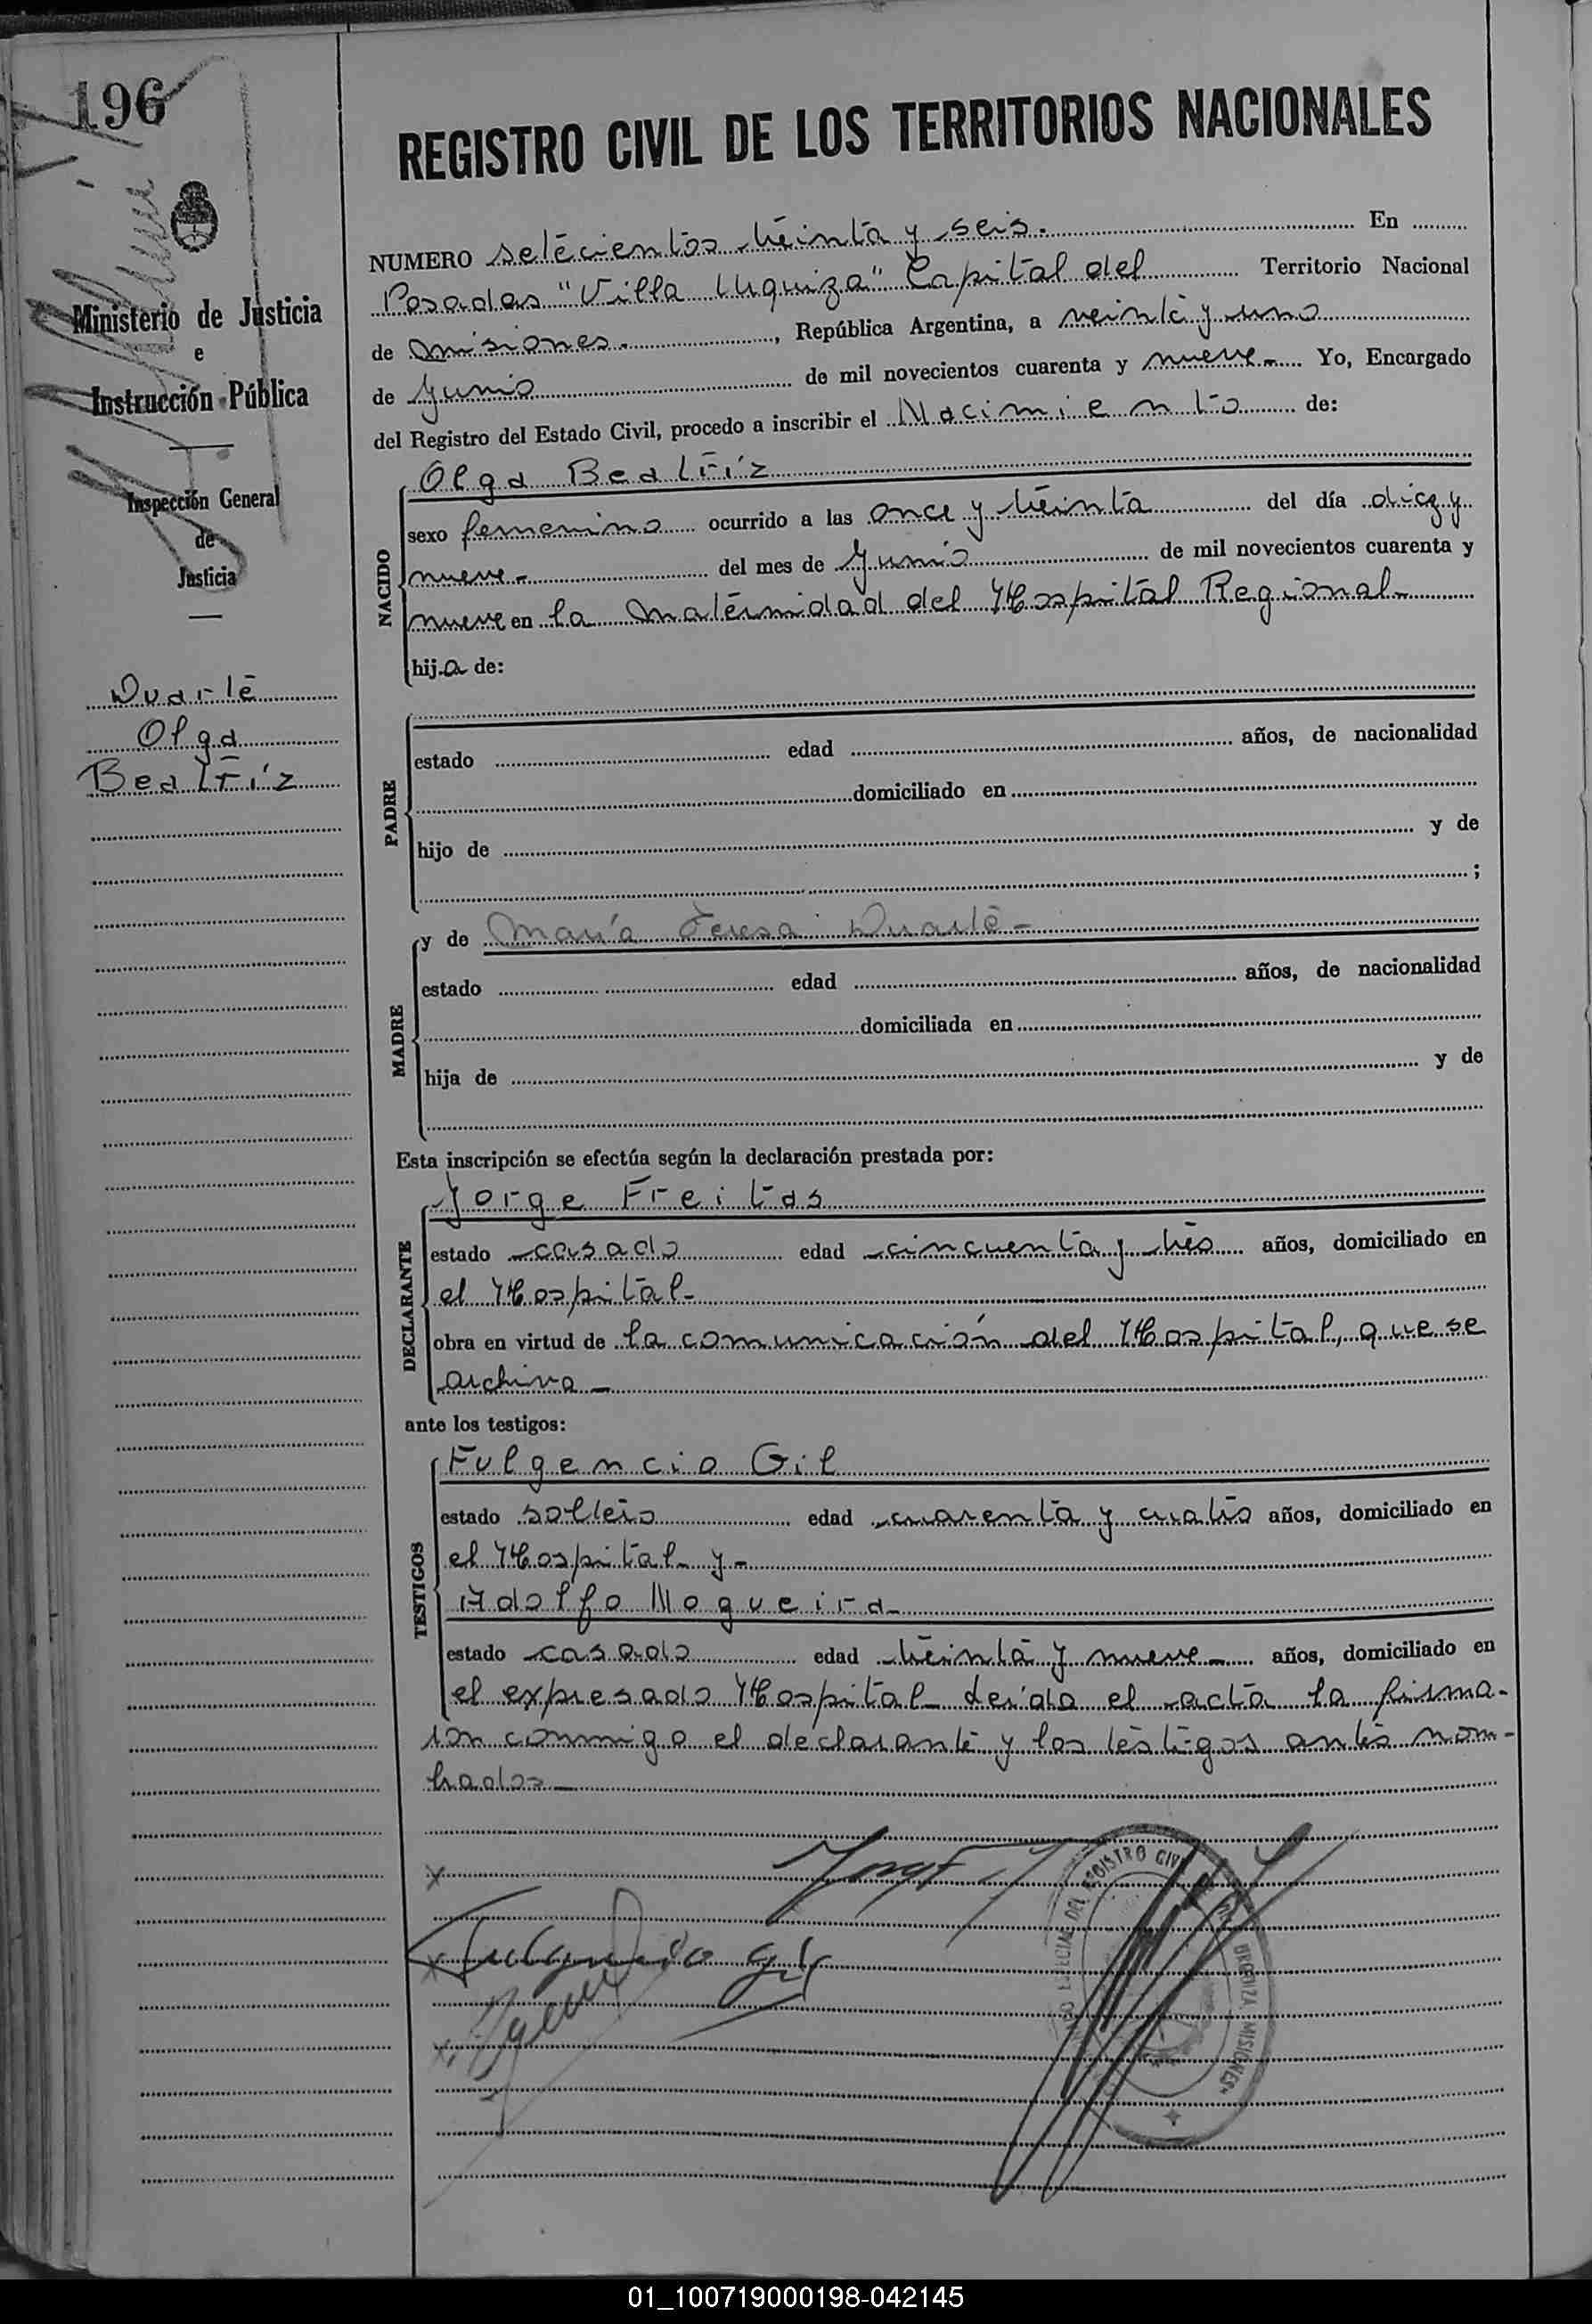 196
REGISTRO CIVIL DE LOS TERRITORIOS NACIONALES
Ministerio de Justicia
e
Instrucción Pública
Inspección General
de
Justicia
Duarte
Olga
Beatríz
NUMERO setecientos treinta y seis. En
Posadas "Villa Urquiza" Capital del Territorio Nacional
de Misiones. , República Argentina, a veinte y uno
de Junio de mil novecientos cuarenta y nueve. Yo, Encargado
del Registro del Estado Civil, procedo a inscribir el Nacimiento de:
NACIDO
Olga Beatríz
sexo femenino ocurrido a las once y treinta del día diez y
nueve- del mes de Junio de mil novecientos cuarenta y
nueve en la Maternidad del Hospital Regional-
hij.a de:
PADRE
estado edad años, de nacionalidad
domiciliado en
hijo de y de
;
MADRE
y de María Teresa Duarte-
estado edad años, de nacionalidad
domiciliada en
hija de y de
Esta inscripción se efectúa según la declaración prestada por:
DECLARANTE
Jorge Freitas
estado casado edad cincuenta y tres años, domiciliado en
el Hospital-
obra en virtud de la comunicación del Hospital, que se
archiva-
ante los testigos:
TESTIGOS
Fulgencio Gil
estado soltero edad cuarenta y cuatro años, domiciliado en
el Hospital y-
Adolfo Nogueira-
estado casado edad treinta y nueve- años, domiciliado en
el expresado Hospital- Leída el acta la firma-
ron conmigo el declarante y los testigos antes nom-
brados-
x
x Fulgencio Gil
x
DEL REGISTRO CIVIL
MISIONES
01_100719000198-042145